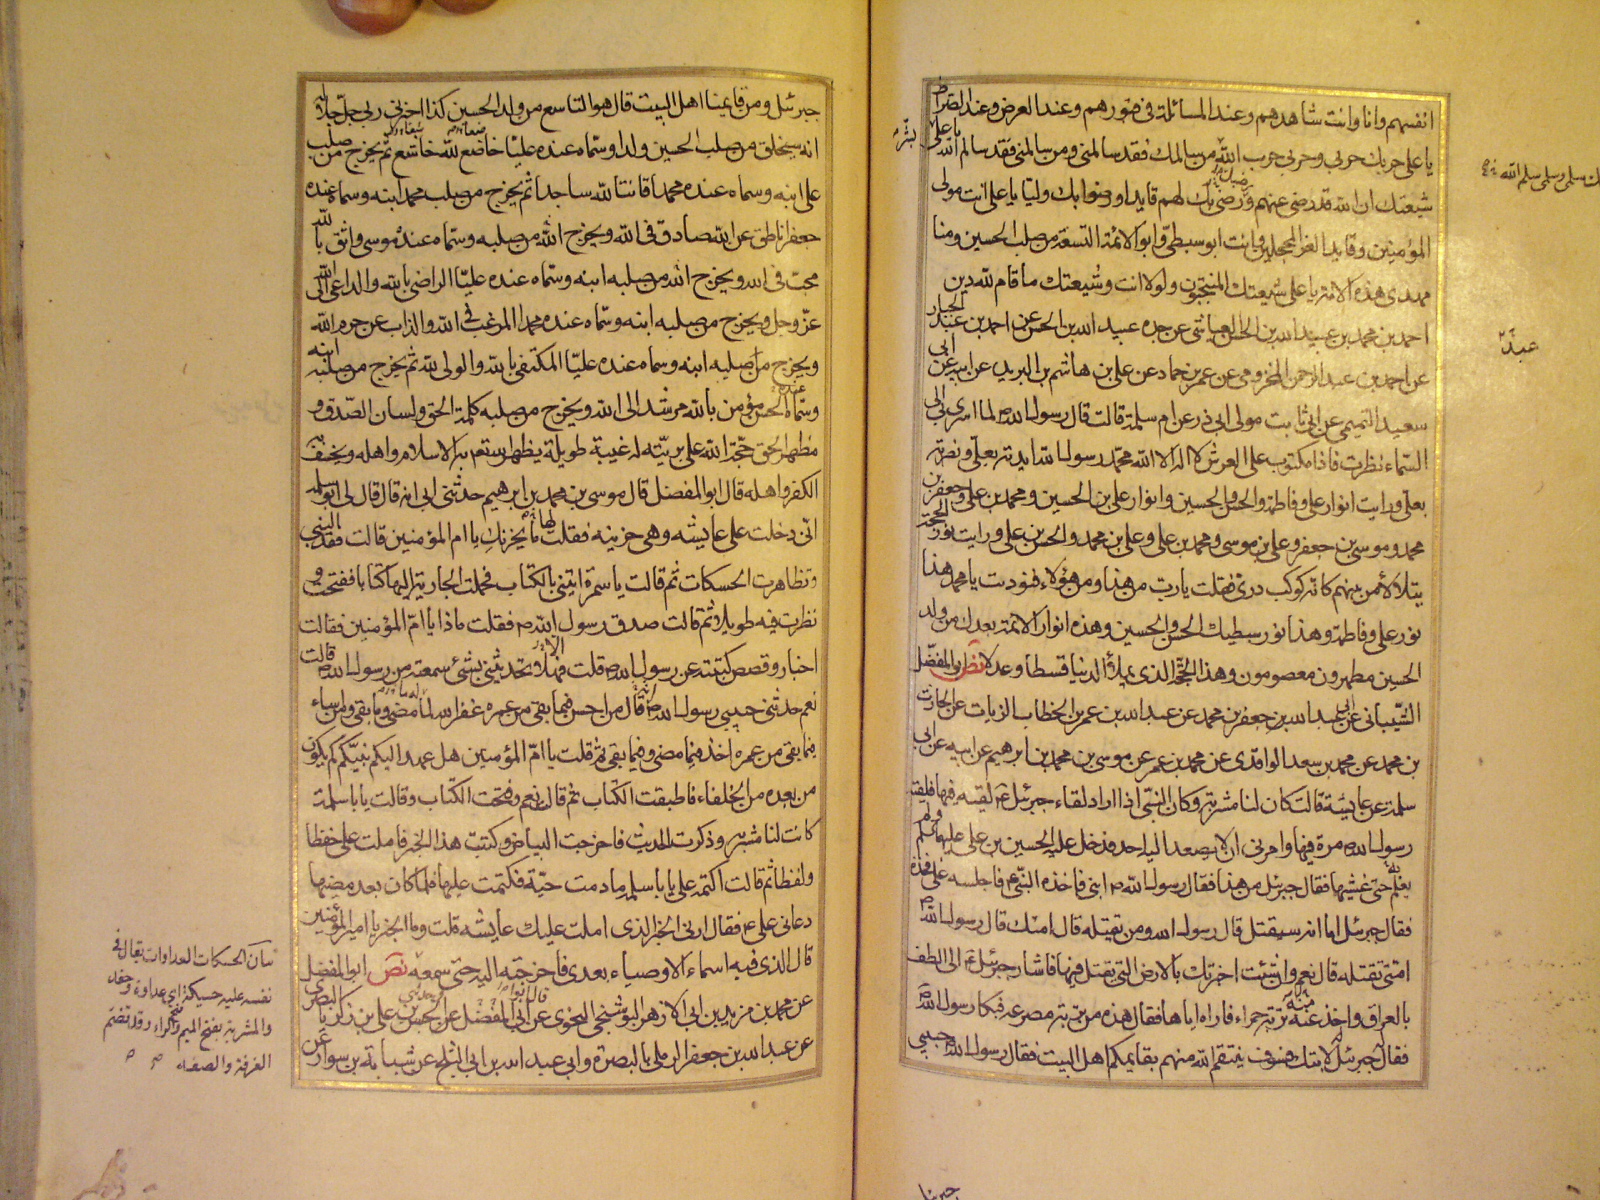 انفسهم وانا وانت شاهدهم وعند المسائلة في قبورهم وعند العرض وعند الصراط
يا علي حربك حربي وحربي حرب الله من سالمك فقد سالمني ومن سالمني فقد سالم الله يا علي بشّر
شيعتك ان الله قد رضي عنهم ورضي بك لهم قايدا ورضوا بك وليّا يا علي انت مولى
المؤمنين وقايد الغرّ المحجلين وانت ابو سبطيّ وابو الائمة التسعة من صلب الحسين ومنا
مهدي هذه الامة يا علي شيعتك المنتجبون ولولا انت وشيعتك ما قام لله دين
احمد بن محمد بن عبيد الله بن الحسن العياشي عن جده عبيد الله بن الحسن عن احمد بن عبد الجبار
عن احمد بن عبد الرحمن المخزومي عن عمر بن حماد عن علي بن هاشم بن البريد عن ابيه عن ابي
سعيد التميمي عن ابي ثابت مولى ابي ذر عن ام سلمة قالت قال رسول الله ص لما اسري بي الى
السّماء نظرت فاذا مكتوب على العرش لا اله الا الله محمّد رسول الله ايدته بعليّ ونصرته
بعليّ ورايت انوار علي وفاطمة والحسن والحسين وانوار علي بن الحسين ومحمد بن علي وجعفر بن
محمد وموسى بن جعفر وعلي بن موسى ومحمد بن علي وعلي بن محمد والحسن بن علي ورايت نور الحجّة
يتلألأ من بينهم كانه كوكب دريّ فقلت يا رب من هذا ومن هؤلاء فنوديت يا محمد هذا
نور علي وفاطمة وهذا نور سبطيك الحسن والحسين وهذه انوار الائمة بعدك من ولد
الحسين مطهرون معصومون وهذا الحجّة الذي يملأ الدنيا قسطا وعدلا نص ابو المفضّل
الشّيباني عن ابي عبد الله بن جعفر بن محمد عن عبد الله بن عمر بن الخطاب الزيات عن الحارث
بن محمد عن محمد بن سعد الواقدي عن محمد بن عمر عن موسى بن محمد بن ابرهيم عن ابيه عن ابي
سلمة عن عايشة قالت كان لنا مشربة وكان النبي اذا اراد لقاء جبرئيل ع لقيه فيها فلقيه
رسول الله ص مرة فيها وامرني ان لا يصعد اليه احد فدخل عليه الحسين بن علي عليهما ولم
يعلم حتى غشيها فقال جبرئيل من هذا فقال رسول الله ص ابني فاخذه النبي ص فاجلسه على فخذه
فقال جبرئيل اما انه سيقتل قال رسول الله ومن يقتله قال امتك قال رسول الله
امتي تقتله قال نعم وان شئت اخبرتك بالارض التي يقتل فيها فاشار جبرئيل ع الى الطف
بالعراق واخذ عنه تربة حمراء فاراه اياها فقال هذه من تربة مصرعه فبكا رسول الله
فقال جبرئيل لا تبك فسوف ينتقم الله منهم بقايمكم اهل البيت فقال رسول الله حبيبي
سلمي وسلمي سلم الله
عبد
جبرئيل
جبرئيل ومن قايمنا اهل البيت قال هو التاسع من ولد الحسين كذا اخبرني ربي جل جلاله
انه سيخلق من صلب الحسين ولدا وسمّاه عنده عليّا خاضع لله خاشع ثم يخرج من صلب
علي ابنه وسماه عنده محمدا قانتا لله ساجدا ثم يخرج من صلب محمد ابنه وسماه عنده
جعفرا ناطق عن الله صادق في الله ويخرج الله من صلبه وسمّاه عنده موسى واثق بالله
محبّ في الله ويخرج الله من صلبه ابنه وسمّاه عنده عليّا الراضي بالله والداعي الى الله
عزّ وجل ويخرج من صلبه ابنه وسمّاه عنده محمدا المرغب في الله والذاب عن حرم الله
ويخرج من صلبه ابنه وسماه عنده عليّا المكتفي بالله والولي لله ثم يخرج من صلبه ابنه
وسمّاه الحسن مؤمن بالله مرشد الى الله ويخرج من صلبه كلمة الحق ولسان الصّدق و
مظهر الحق حجّة الله على بريّته له غيبة طويلة يظهر الله تعم به الاسلام واهله ويخسف
الكفر واهله قال ابو المفضل قال موسى بن محمد بن ابرهيم حدثني ابي انه قال قال لي ابو سلمة
انّي دخلت على عايشه وهي حزينة فقلت لها ما يحزنك يا ام المؤمنين قالت فقد النبي
وتظاهرت الحسكات ثم قالت يا سمرة ايتيني بالكتاب فحملت الجارية اليها كتابا ففتحت و
نظرت فيه طويلا ثم قالت صدق رسول الله ص فقلت ماذا يا امّ المؤمنين فقالت
اخبار وقصص كتبته عن رسول الله قلت فهلا تحدثيني بشئ سمعته من رسول الله قالت
نعم حدثني حبيبي رسول الله قال من احسن فيما بقي من عمره غفر الله لما مضى وما بقي ومن اساء
فيما بقي من عمره اخذ فيما مضى وفيما بقي ثم قلت يا امّ المؤمنين هل عهد اليكم نبيّكم كم يكون
من بعده من الخلفاء فاطبقت الكتاب ثم قالت نعم وفتحت الكتاب وقالت يا با سلمة
كانت لنا مشربة وذكرت الحديث فاخرجت البياض وكتبت هذا الخبر فاملت علي حفظا
ولفظا ثم قالت اكتمه علي يا با سلمة ما دمت حيّة فكتمت عليها فلما كان بعد مضيها
دعاني علي ع فقال ارني الخبر الذي املت عليك عايشه قلت وما الخبر يا امير المؤمنين
قال الذي فيه اسماء الاوصياء بعدي فاخرجته اليه حتى سمعه نص ابو المفضل
عن محمد بن مزيد بن ابي الازهر البوشنجي النحوي عن ابي المفضل عن الحسن بن علي بن زكريا البصري
عن عبد الله بن جعفر الرملي بالبصرة وابي عبد الله بن ابي الثلج عن شبابة بن سوار عن
بيان الحسكات العداوات يقال في
نفسه عليه حسيكة اي عداوة وحقد
والمشربة بفتح الميم وفتح الراء وقد تضم
الغرفة والصفة